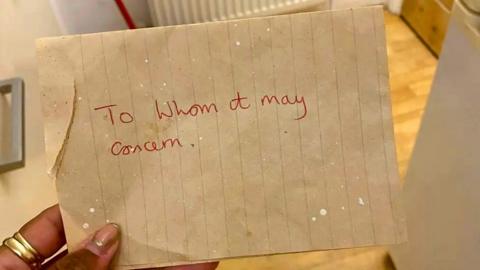 To Whom it may
concern.